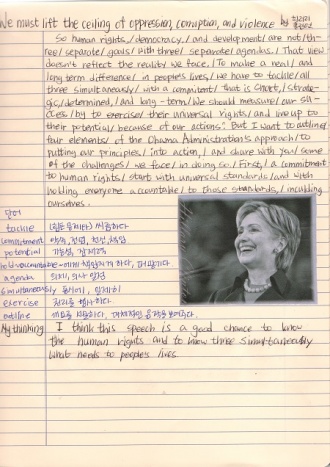 We must lift the ceiling of oppression, corruption, and violence by
So human rights,/ democracy,/ and development/ are not/ th-
ree/ separate/ goals/ with three/ separate/ agendas. That view
doesn't reflect the reality we face./ To make a real/ and
long term difference/ in people's lives,/ we have to tackle/ all
three simultaneously/ with a commitment/ that is smart,/ strate-
gic,/ determined,/ and long-term./ We should measure/ our
/ by to exercise/ their universal rights/ and live up to
their potential/ because of our actions. But I want to outline/
four elements/ of the Obama Administration's approach/ to
putting our principles/ into action,/ and share with you/ some
of the challenges/ we face/ in doing so./ First,/ a commitment
to human rights/ start with universal standards/ and with
holding everyone accountable/ to those standards,/ including
ourselves.
단어
tackle (힘든 문제와) 씨름하다
commitment 약속, 전념, 헌신, 책임
potential 가능성, 잠재력
hold~accountable ~에게 책임지게 하다,
agenda 의제, 의사 일정
simultaneously 동시에, 일제히
exercise 권리를 행사하다
outline 개요를 서술하다, 윤곽을 보여주다.
My thinking I think this speech is a good chance to know
the human rights and to know three simultaneously
what needs to people's lives